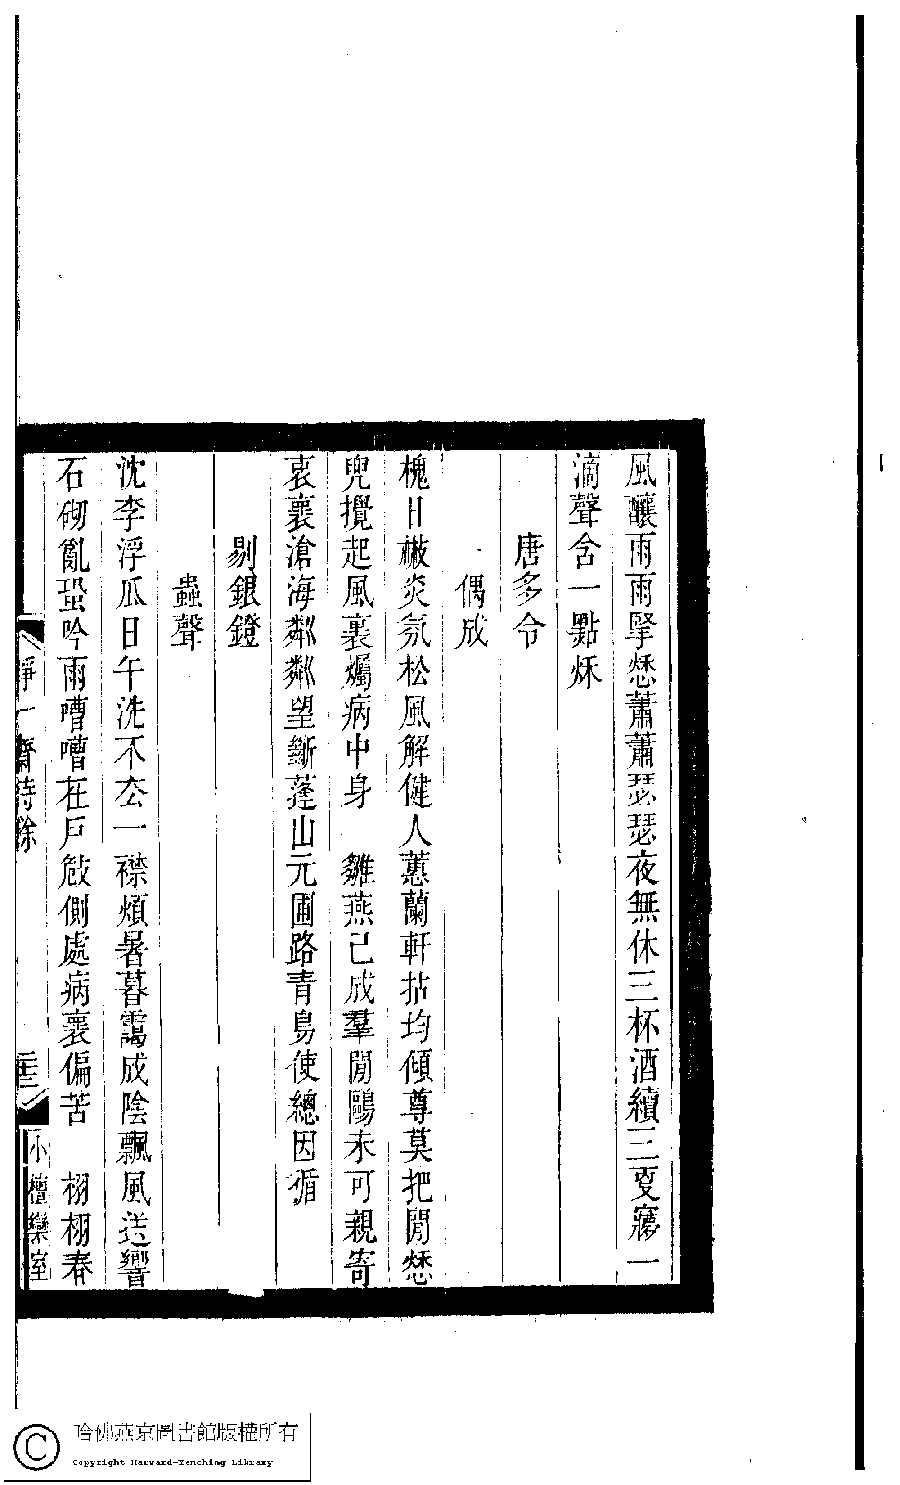 風釀雨雨孥愁蕭蕭瑟瑟夜無休三杯酒續三更寢一
滴聲含一點秌
唐多令
偶成
槐日𣞶炎氛松風解健人蕙蘭軒拈均傾尊莫把閒愁
兜攪起風裏燭病中身　雛燕已成羣閒鷗未可親寄
衷裏滄海粼粼望斷蓬山元圃路青鳥使總因循
剔銀鐙
蟲聲
沈李浮瓜日午洗不厺一襟煩暑暮靄成陰飄風送響
石砌亂蛩吟雨嘈嘈在戶攲側處病裏偏苦　栩栩春
靜一齋詩餘
小檀欒室
哈佛燕京圖書館版權所有
Copyright Harvard-Yenching Library